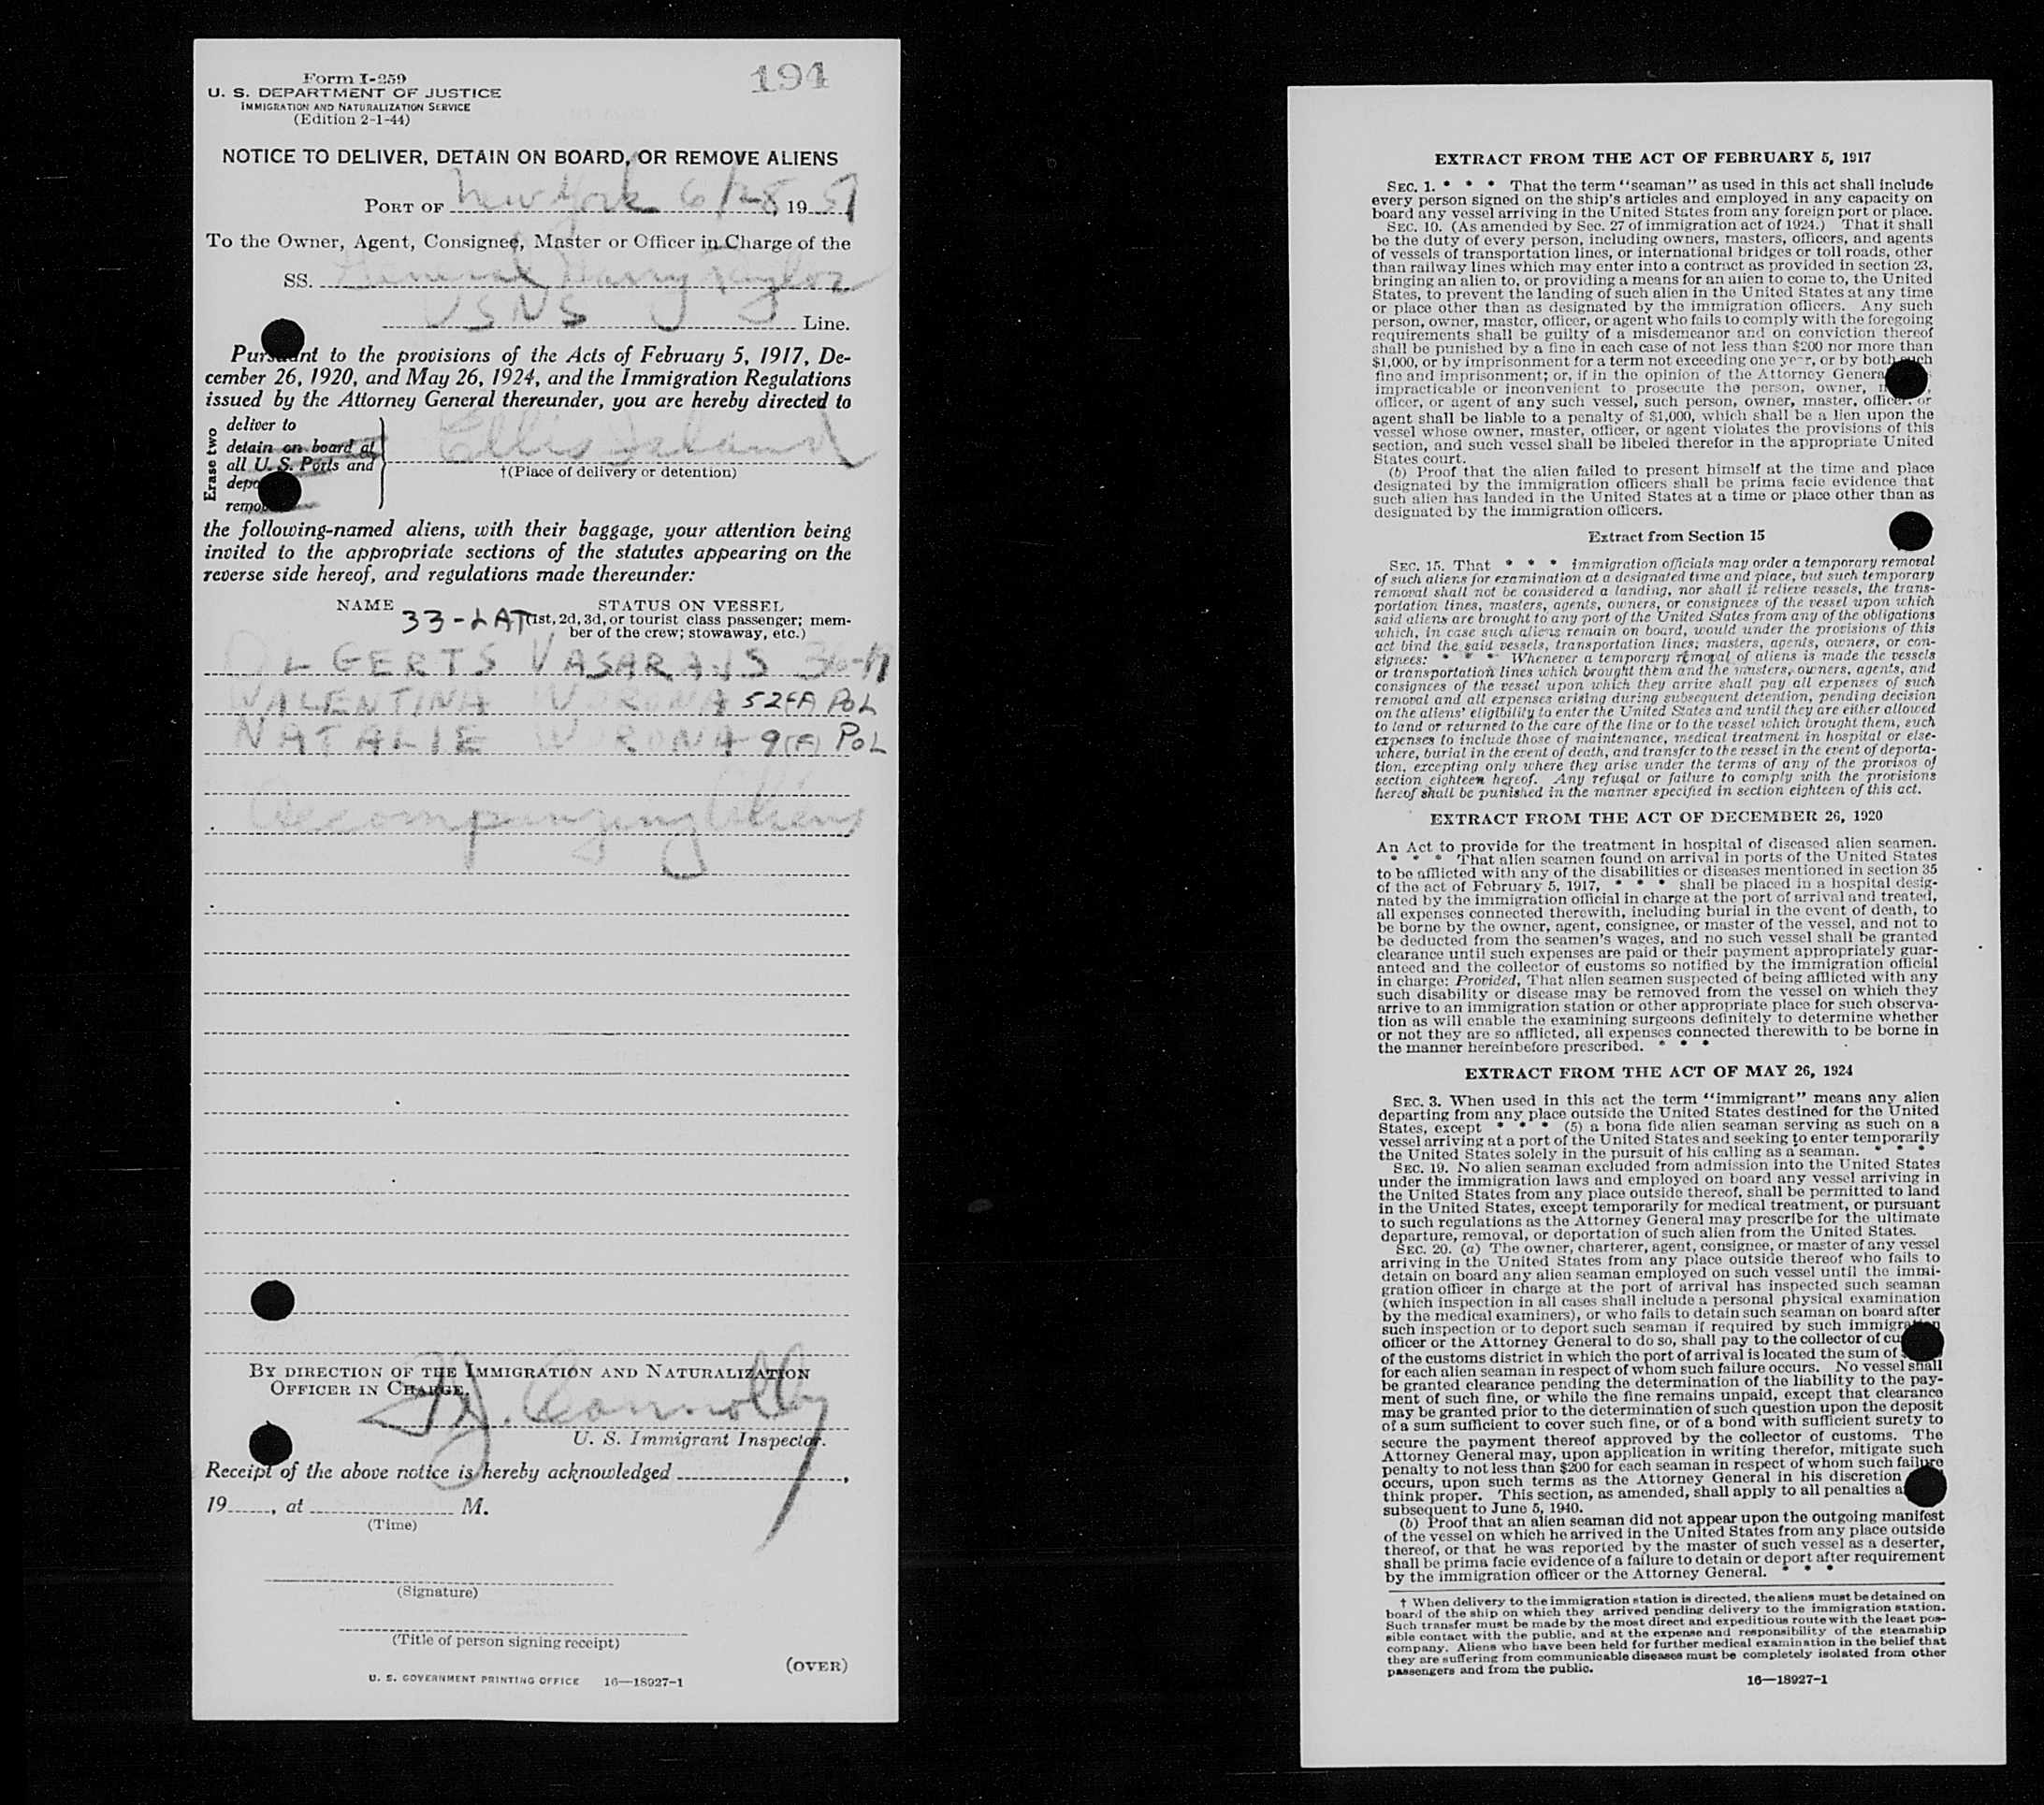 194
Form I-259
U. S. DEPARTMENT OF JUSTICE
IMMIGRATION AND NATURALIZATION SERVICE
(Edition 2-1-44)
NOTICE TO DELIVER, DETAIN ON BOARD, OR REMOVE ALIENS
PORT OF New York 6/28, 19 51
To the Owner, Agent, Consignee, Master or Officer in Charge of the
SS. General Harry Taylor
USNS Line.
Pursuant to the provisions of the Acts of February 5, 1917, De-
cember 26, 1920, and May 26, 1924, and the Immigration Regulations
issued by the Attorney General thereunder, you are hereby directed to
Erase two
deliver to
detain on board at
all U. S. Ports and
Ellis Island
†(Place of delivery or detention)
the following-named aliens, with their baggage, your attention being
invited to the appropriate sections of the statutes appearing on the
reverse side hereof, and regulations made thereunder:
NAME 33-LAT STATUS ON VESSEL
(1st, 2d, 3d, or tourist class passenger; mem-
ber of the crew; stowaway, etc.)
OLGERTS VASARAJS
VALENTINA WORONA 52 (F) POL
NATALIE WORONA 9 (F) POL
Accompanying Aliens
BY DIRECTION OF THE IMMIGRATION AND NATURALIZATION
OFFICER IN CHARGE.
Connolly
U. S. Immigrant Inspector.
Receipt of the above notice is hereby acknowledged ,
19 , at M.
(Time)
(Signature)
(Title of person signing receipt)
(OVER)
U. S. GOVERNMENT PRINTING OFFICE 16—18927-1
EXTRACT FROM THE ACT OF FEBRUARY 5, 1917
SEC. 1. * * * That the term "seaman" as used in this act shall include
every person signed on the ship's articles and employed in any capacity on
board any vessel arriving in the United States from any foreign port or place.
SEC. 10. (As amended by Sec. 27 of immigration act of 1924.) That it shall
be the duty of every person, including owners, masters, officers, and agents
of vessels of transportation lines, or international bridges or toll roads, other
than railway lines which may enter into a contract as provided in section 23,
bringing an alien to, or providing a means for an alien to come to, the United
States, to prevent the landing of such alien in the United States at any time
or place other than as designated by the immigration officers. Any such
person, owner, master, officer, or agent who fails to comply with the foregoing
requirements shall be guilty of a misdemeanor and on conviction thereof
shall be punished by a fine in each case of not less than $200 nor more than
$1,000, or by imprisonment for a term not exceeding one year, or by both such
fine and imprisonment; or, if in the opinion of the Attorney General
impracticable or inconvenient to prosecute the person, owner,
officer, or agent of any such vessel, such person, owner, master, officer, or
agent shall be liable to a penalty of $1,000, which shall be a lien upon the
vessel whose owner, master, officer, or agent violates the provisions of this
section, and such vessel shall be libeled therefor in the appropriate United
States court.
(b) Proof that the alien failed to present himself at the time and place
designated by the immigration officers shall be prima facie evidence that
such alien has landed in the United States at a time or place other than as
designated by the immigration officers.
Extract from Section 15
SEC. 15. That * * * immigration officials may order a temporary removal
of such aliens for examination at a designated time and place, but such temporary
removal shall not be considered a landing, nor shall it relieve vessels, the trans-
portation lines, masters, agents, owners, or consignees of the vessel upon which
said aliens are brought to any port of the United States from any of the obligations
which, in case such aliens remain on board, would under the provisions of this
act bind the said vessels, transportation lines, masters, agents, owners, or con-
signees: * * * Whenever a temporary removal of aliens is made the vessels
or transportation lines which brought them and the masters, owners, agents, and
consignees of the vessel upon which they arrive shall pay all expenses of such
removal and all expenses arising during subsequent detention, pending decision
on the aliens' eligibility to enter the United States and until they are either allowed
to land or returned to the care of the line or to the vessel which brought them, such
expenses to include those of maintenance, medical treatment in hospital or else-
where, burial in the event of death, and transfer to the vessel in the event of deporta-
tion, excepting only where they arise under the terms of any of the provisos of
section eighteen hereof. Any refusal or failure to comply with the provisions
hereof shall be punished in the manner specified in section eighteen of this act.
EXTRACT FROM THE ACT OF DECEMBER 26, 1920
An Act to provide for the treatment in hospital of diseased alien seamen.
* * * That alien seamen found on arrival in ports of the United States
to be afflicted with any of the disabilities or diseases mentioned in section 35
of the act of February 5, 1917, * * * shall be placed in a hospital desig-
nated by the immigration official in charge at the port of arrival and treated,
all expenses connected therewith, including burial in the event of death, to
be borne by the owner, agent, consignee, or master of the vessel, and not to
be deducted from the seamen's wages, and no such vessel shall be granted
clearance until such expenses are paid or their payment appropriately guar-
anteed and the collector of customs so notified by the immigration official
in charge: Provided, That alien seamen suspected of being afflicted with any
such disability or disease may be removed from the vessel on which they
arrive to an immigration station or other appropriate place for such observa-
tion as will enable the examining surgeons definitely to determine whether
or not they are so afflicted, all expenses connected therewith to be borne in
the manner hereinbefore prescribed. * * *
EXTRACT FROM THE ACT OF MAY 26, 1924
SEC. 3. When used in this act the term "immigrant" means any alien
departing from any place outside the United States destined for the United
States, except * * * (5) a bona fide alien seaman serving as such on a
vessel arriving at a port of the United States and seeking to enter temporarily
the United States solely in the pursuit of his calling as a seaman. * * *
SEC. 19. No alien seaman excluded from admission into the United States
under the immigration laws and employed on board any vessel arriving in
the United States from any place outside thereof, shall be permitted to land
in the United States, except temporarily for medical treatment, or pursuant
to such regulations as the Attorney General may prescribe for the ultimate
departure, removal, or deportation of such alien from the United States.
SEC. 20. (a) The owner, charterer, agent, consignee, or master of any vessel
arriving in the United States from any place outside thereof who fails to
detain on board any alien seaman employed on such vessel until the immi-
gration officer in charge at the port of arrival has inspected such seaman
(which inspection in all cases shall include a personal physical examination
by the medical examiners), or who fails to detain such seaman on board after
such inspection or to deport such seaman if required by such immigration
officer or the Attorney General to do so, shall pay to the collector of
of the customs district in which the port of arrival is located the sum of
for each alien seaman in respect of whom such failure occurs. No vessel shall
be granted clearance pending the determination of the liability to the pay-
ment of such fine, or while the fine remains unpaid, except that clearance
may be granted prior to the determination of such question upon the deposit
of a sum sufficient to cover such fine, or of a bond with sufficient surety to
secure the payment thereof approved by the collector of customs. The
Attorney General may, upon application in writing therefor, mitigate such
penalty to not less than $200 for each seaman in respect of whom such failure
occurs, upon such terms as the Attorney General in his discretion
think proper. This section, as amended, shall apply to all penalties
subsequent to June 5, 1940.
(b) Proof that an alien seaman did not appear upon the outgoing manifest
of the vessel on which he arrived in the United States from any place outside
thereof, or that he was reported by the master of such vessel as a deserter,
shall be prima facie evidence of a failure to detain or deport after requirement
by the immigration officer or the Attorney General. * * *
† When delivery to the immigration station is directed, the aliens must be detained on
board of the ship on which they arrived pending delivery to the immigration station.
Such transfer must be made by the most direct and expeditious route with the least pos-
sible contact with the public, and at the expense and responsibility of the steamship
company. Aliens who have been held for further medical examination in the belief that
they are suffering from communicable diseases must be completely isolated from other
passengers and from the public.
16—18927-1